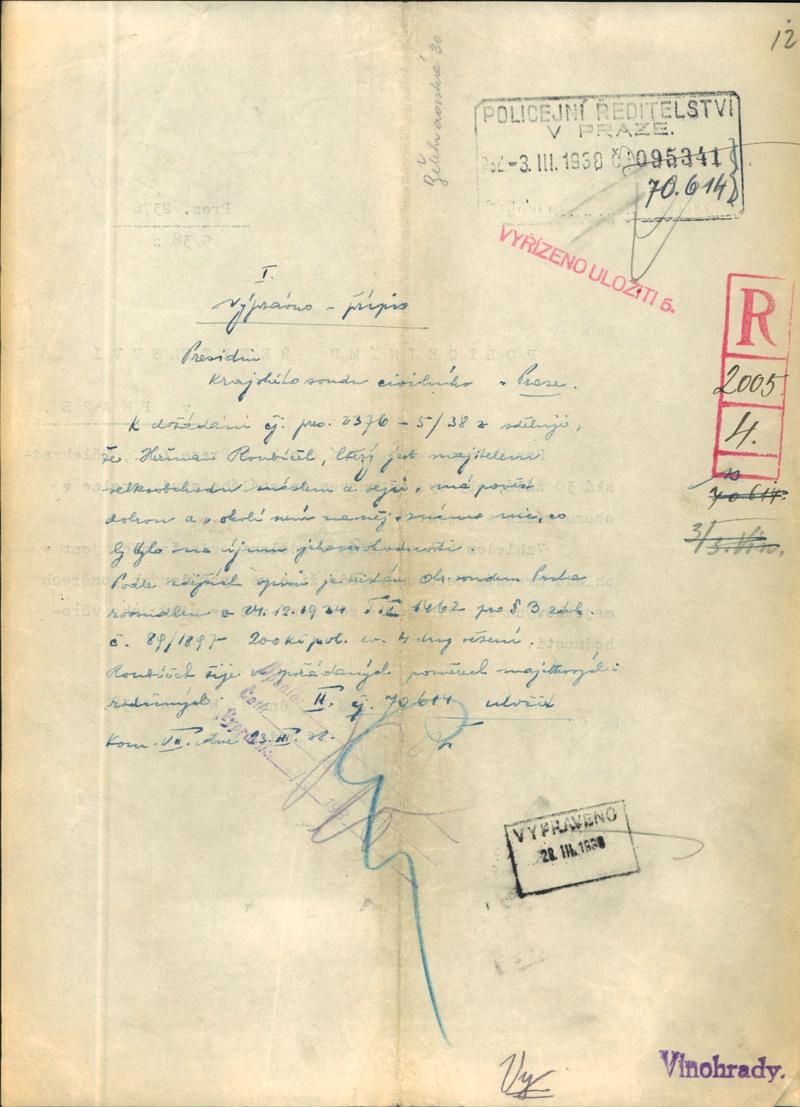 12
Želehradská 30
POLICEJNÍ ŘEDITELSTVÍ
V PRAZE.
-3. III. 1938 Č 095341
70.614
VYŘÍZENO ULOŽITI 5.
R
2005
4.
70614
3/3. Vin.
I.
Výpravno - přípis
Presidiu
Krajského soudu civilního v Praze.
K dožádání čj. pres. 2376 - 5/38 z sděluji,
že Heřman Roubíček, který jest majitelem
velkoobchodu máslem a vejci, má pověst
dobrou a v okolí není na něj známo nic, co
by bylo na újmu jeho věrohodnosti
Podle zdejších spisů je trestán okr. soudem Praha
rozsudkem z 24.12.1934 T IX 1462 pro § 3 zák.
č. 89/1897 200 Kč pok. ev. 4 dny vězení.
Roubíček žije v spořádaných poměrech majetkových i
rodinných. II. čj. 70614 uložit
Kom. VII. dne 23. III. 38.
VYPRAVENO
28. III. 1938
Vy
Vinohrady.